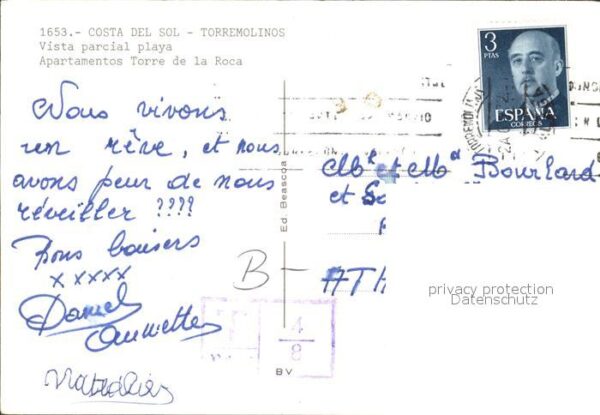 1653.- COSTA DEL SOL - TORREMOLINOS
Vista parcial playa
Apartamentos Torre de la Roca
3
PTAS
ESPAÑA
CORREOS
TORREMOLINOS
Nous vivons
un rêve, et nous
avons peur de nous
réveiller ????
Bons baisers
xxxxx
Daniel
Annette
Ed. Beascoa
Mr et Md Bourland
et
B-
ATH
T
4
8
BV
privacy protection
Datenschutz